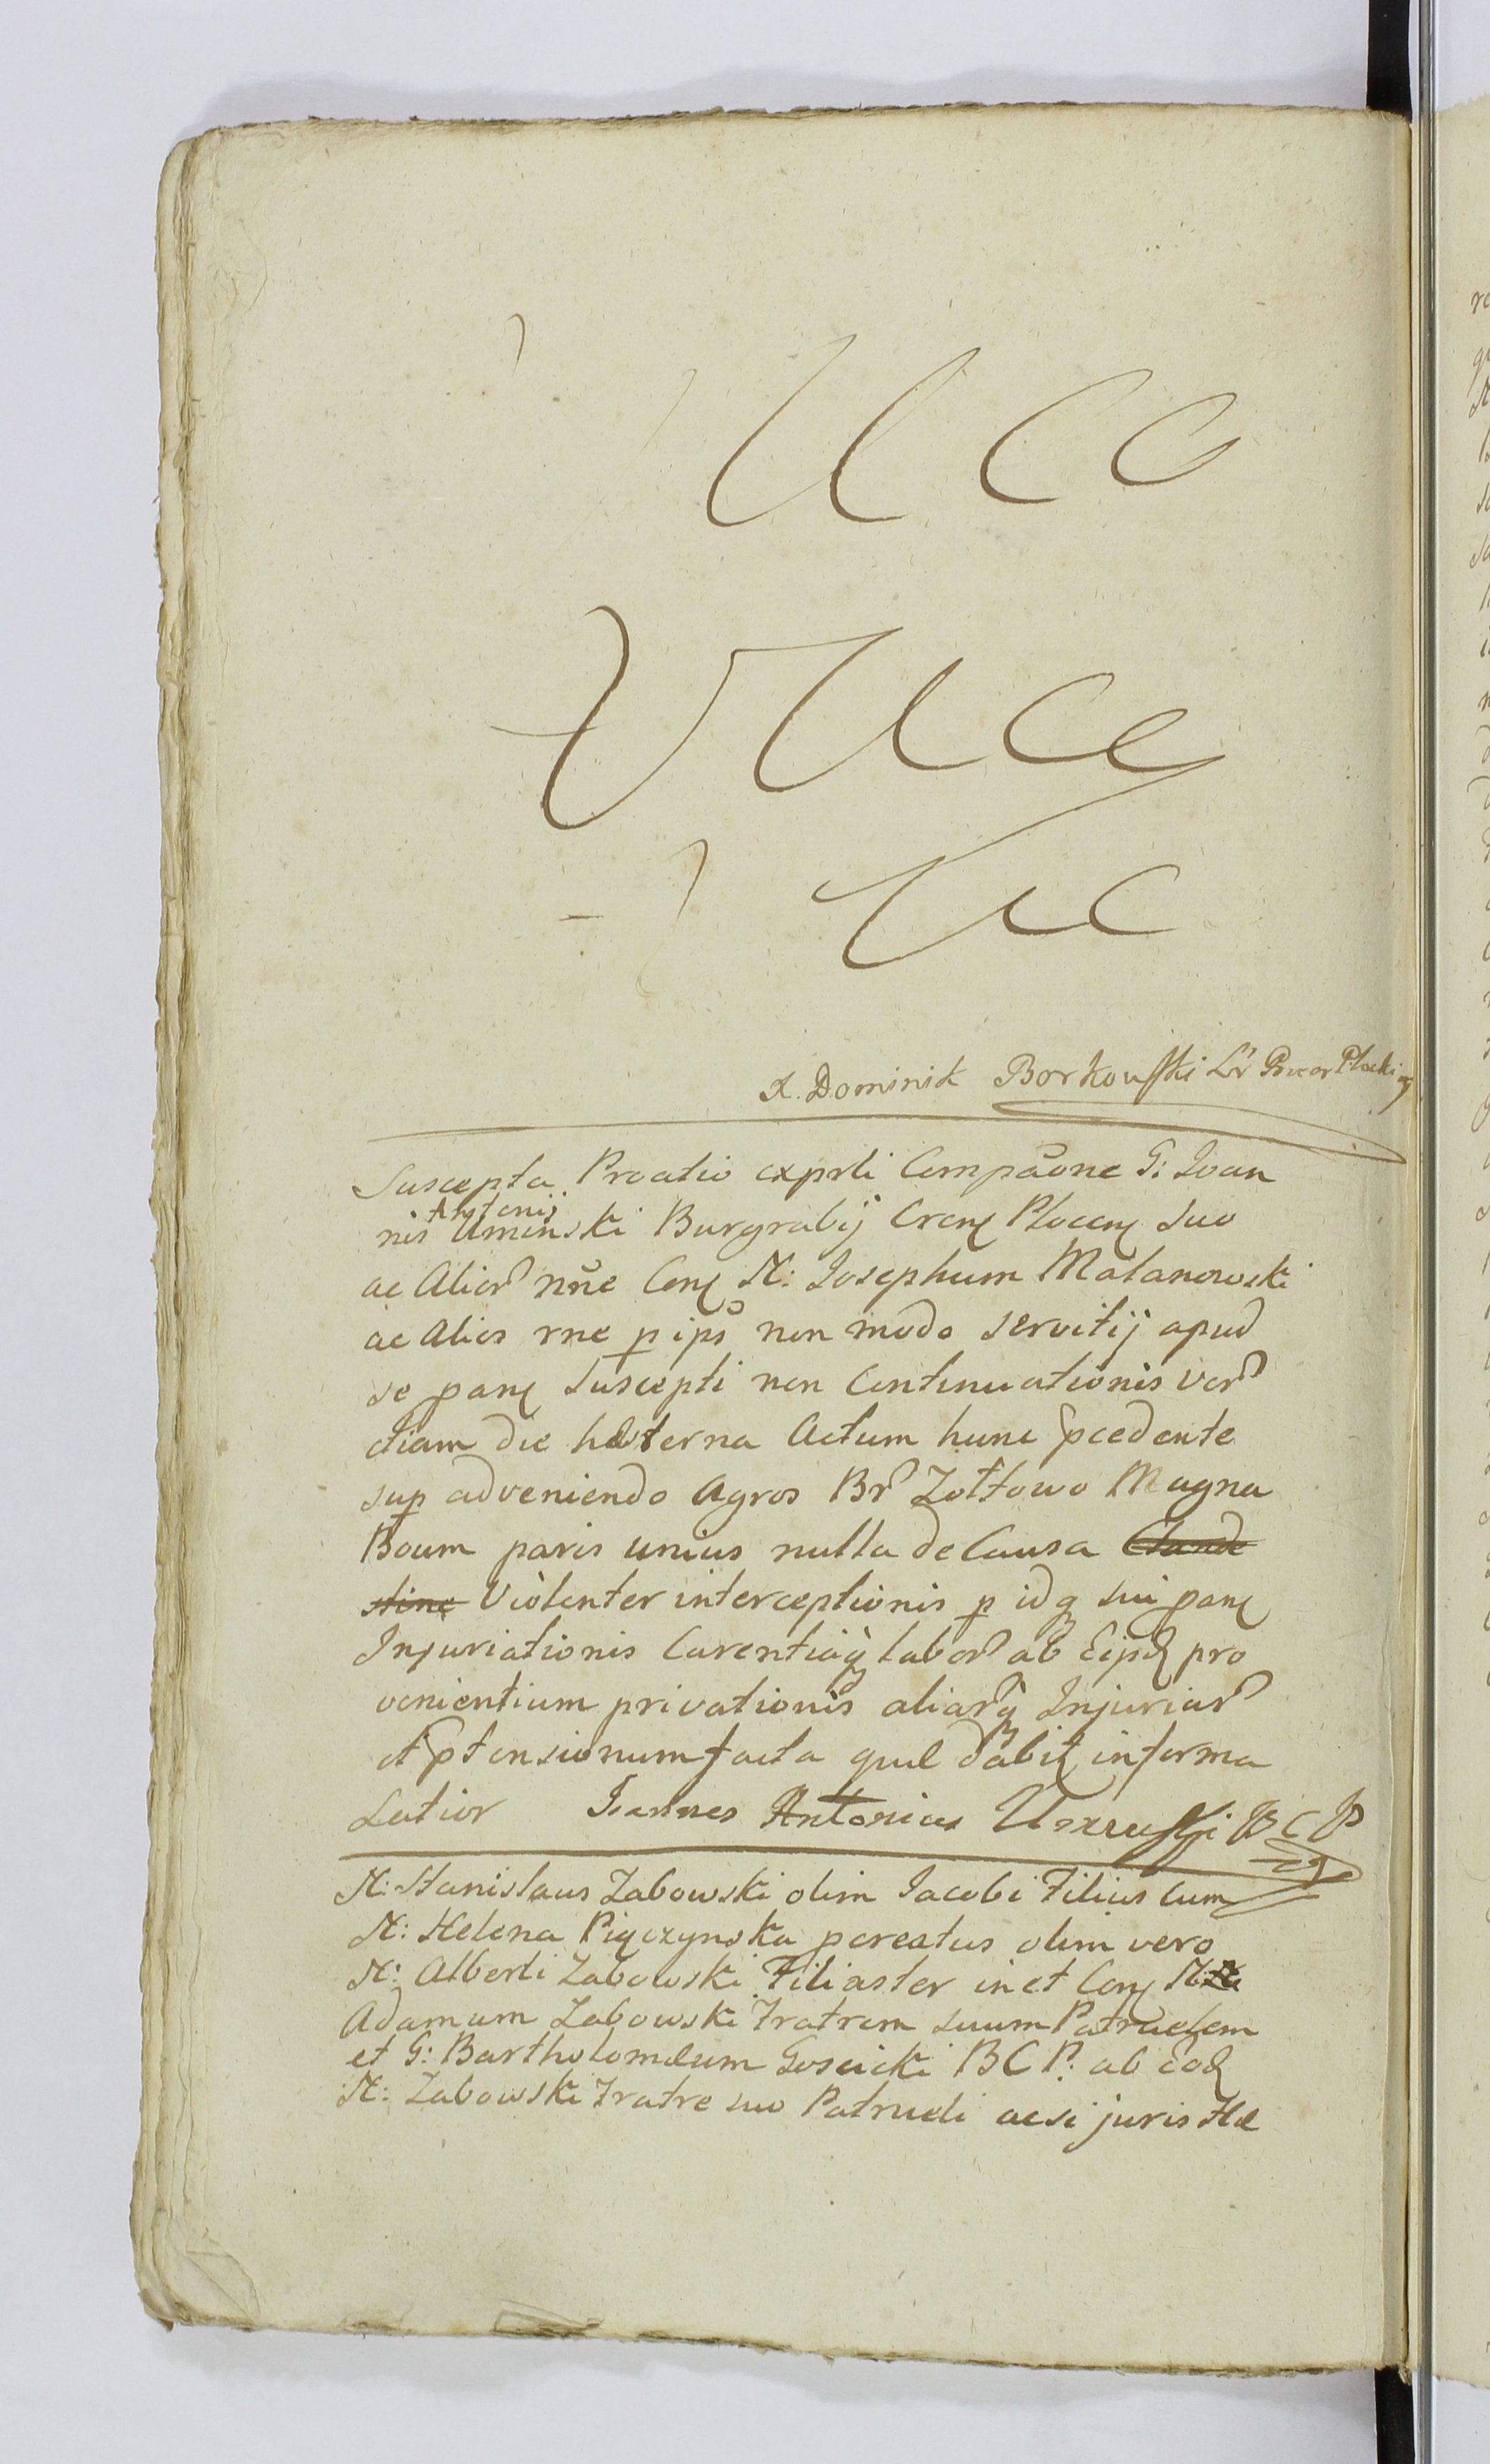 X. Dominik Borkowski
Suscepta Proatio exprti Compãone G: Joan
Antonij
nis Uminski Burgrabij Cren Plocen suo
ac Alior nñe Con N: Josephum Malanowski
ac Alios rne p ips non modo servitij apud
se pane suscepti non Continuationis ver
etiam die hesterna Actum hunc pcedente
sup adveniendo Agros Br Zołtowo Magna
Boum paris unius nulla de Causa Clande
stine Violenter interceptionis p idq sui pane
Injuriationis Carentiaq labor ab Eisd pro
venientium privationis aliarq Injuriar
et ptensionum facta quæ dabit informa
Latior Joannes Antonius Uminski B C P
N: Stanislaus Zabowski olim Jacobi Filius cum
N: Helena Piączynska pcreatus olim vero
N: Alberti Zabowski Filiaster in et Con N:
Adamum Zabowski Fratrem suum Patruelem
et G: Bartholomæum Goscicki B C P: ab Eod
N: Zabowski Fratre suo Patrueli acsi juris Hæ